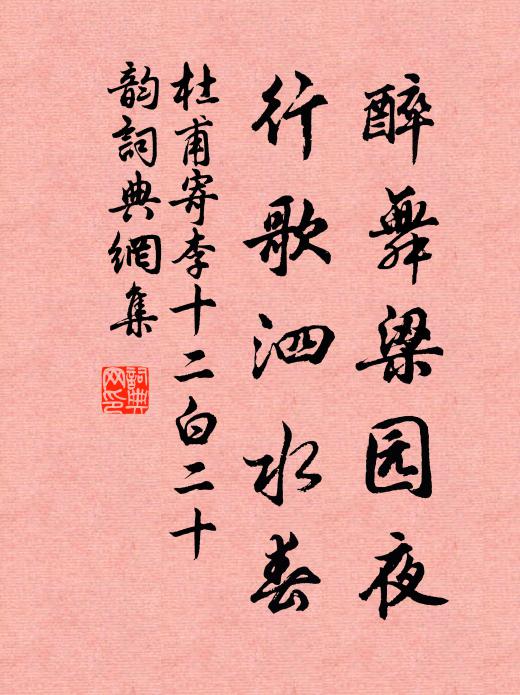 醉舞梁园夜
行歌泗水春
杜甫寄李十二白二十
韵詞典網集
詞典网印